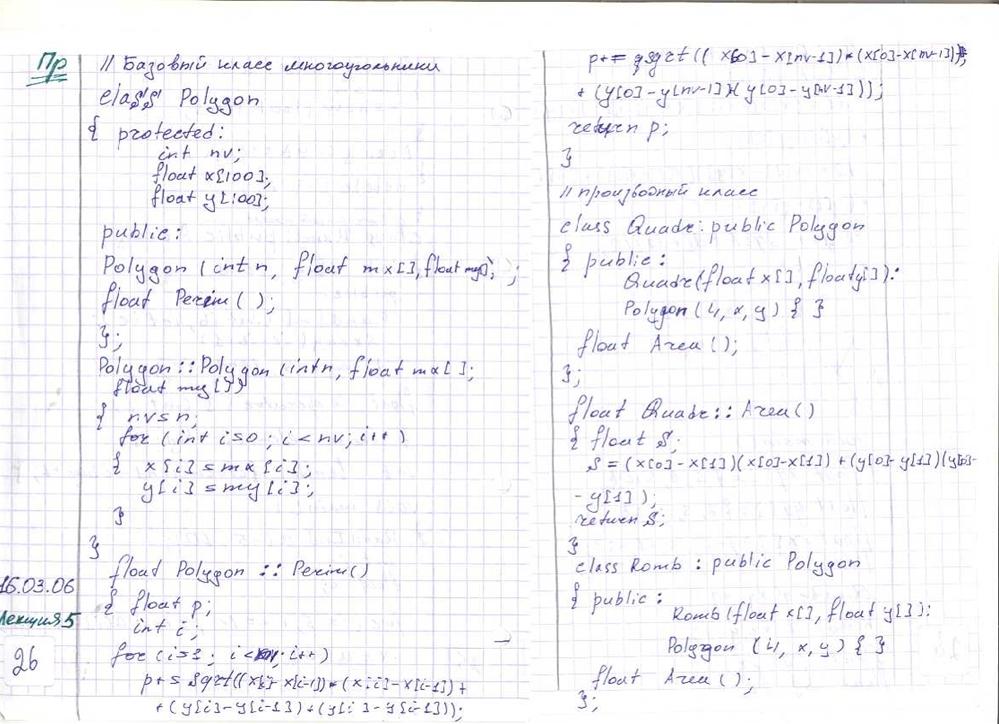 Пр
// Базовый класс многоугольники
class Polygon
{ protected:
int nv;
float x[100];
float y[100];
public:
Polygon (int n, float mx[], float my[]);
float Perim ( );
};
Polygon :: Polygon (int n, float mx[];
float my[])
{ nv = n;
for (int i=0; i < nv; i++)
{ x[i] = mx[i];
y[i] = my[i];
}
}
float Polygon :: Perim()
16.03.06
{ float p;
Лекция 5
int i;
26
for (i=1; i<nv; i++)
p+= sqrt((x[i]-x[i-1])*(x[i]-x[i-1])+
+(y[i]-y[i-1])+(y[i]-y[i-1]));
p+= sqrt((x[0]-x[nv-1])*(x[0]-x[nv-1])
+ (y[0]-y[nv-1])*(y[0]-y[nv-1]));
return p;
}
// производный класс
class Quadr: public Polygon
{ public:
Quadr(float x[], float y[]):
Polygon (4, x, y) { }
float Area ();
};
float Quadr:: Area()
{ float S;
S = (x[0]-x[1])(x[0]-x[1]) + (y[0]-y[1])(y[0]-
-y[1]);
return S;
}
class Romb : public Polygon
{ public:
Romb(float x[], float y[]):
Polygon (4, x, y) { }
float Area ();
};